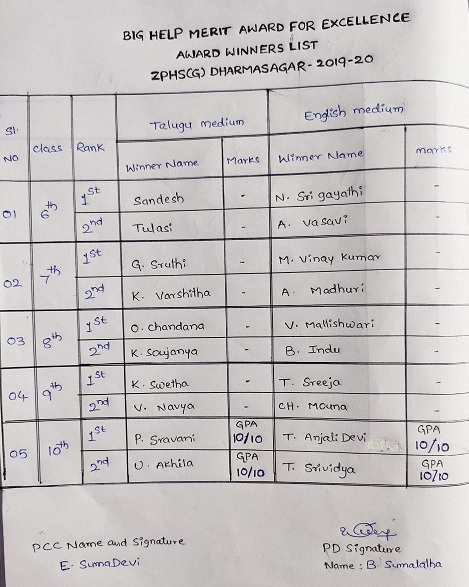 BIG HELP MERIT AWARD FOR EXCELLENCE
AWARD WINNERS LIST
ZPHS(G) DHARMASAGAR - 2019-20
Sl. NO Class Rank Telugu medium English medium
Winner Name Marks Winner Name marks
01 6th 1st Sandesh - N. Sri gayathi -
2nd Tulasi - A. Vasavi -
02 7th 1st G. Sruthi - M. Vinay Kumar -
2nd K. Varshitha - A. Madhuri -
03 8th 1st O. Chandana - V. Mallishwari -
2nd K. Soujanya - B. Indu -
04 9th 1st K. Swetha - T. Sreeja -
2nd V. Navya - CH. Mouna -
05 10th 1st P. Sravani GPA 10/10 T. Anjali Devi GPA 10/10
2nd U. Akhila GPA 10/10 T. Srividya GPA 10/10
PCC Name and Signature
E. SumaDevi
PD Signature
Name: B. Sumalalha